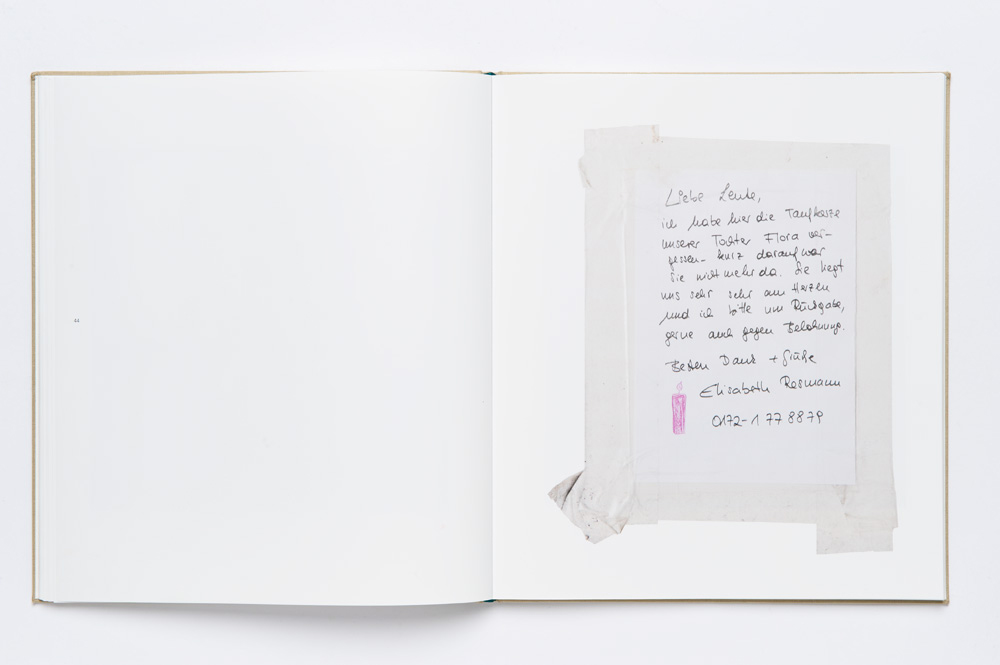 Liebe Leute,
ich habe hier die Taufkerze
unserer Tochter Flora ver-
gessen - kurz darauf war
sie nicht mehr da. Sie liegt
uns sehr sehr am Herzen
und ich bitte um Rückgabe,
gerne auch gegen Belohnung.
Besten Dank + Grüße
Elisabeth Resmann
0172-1 77 88 79